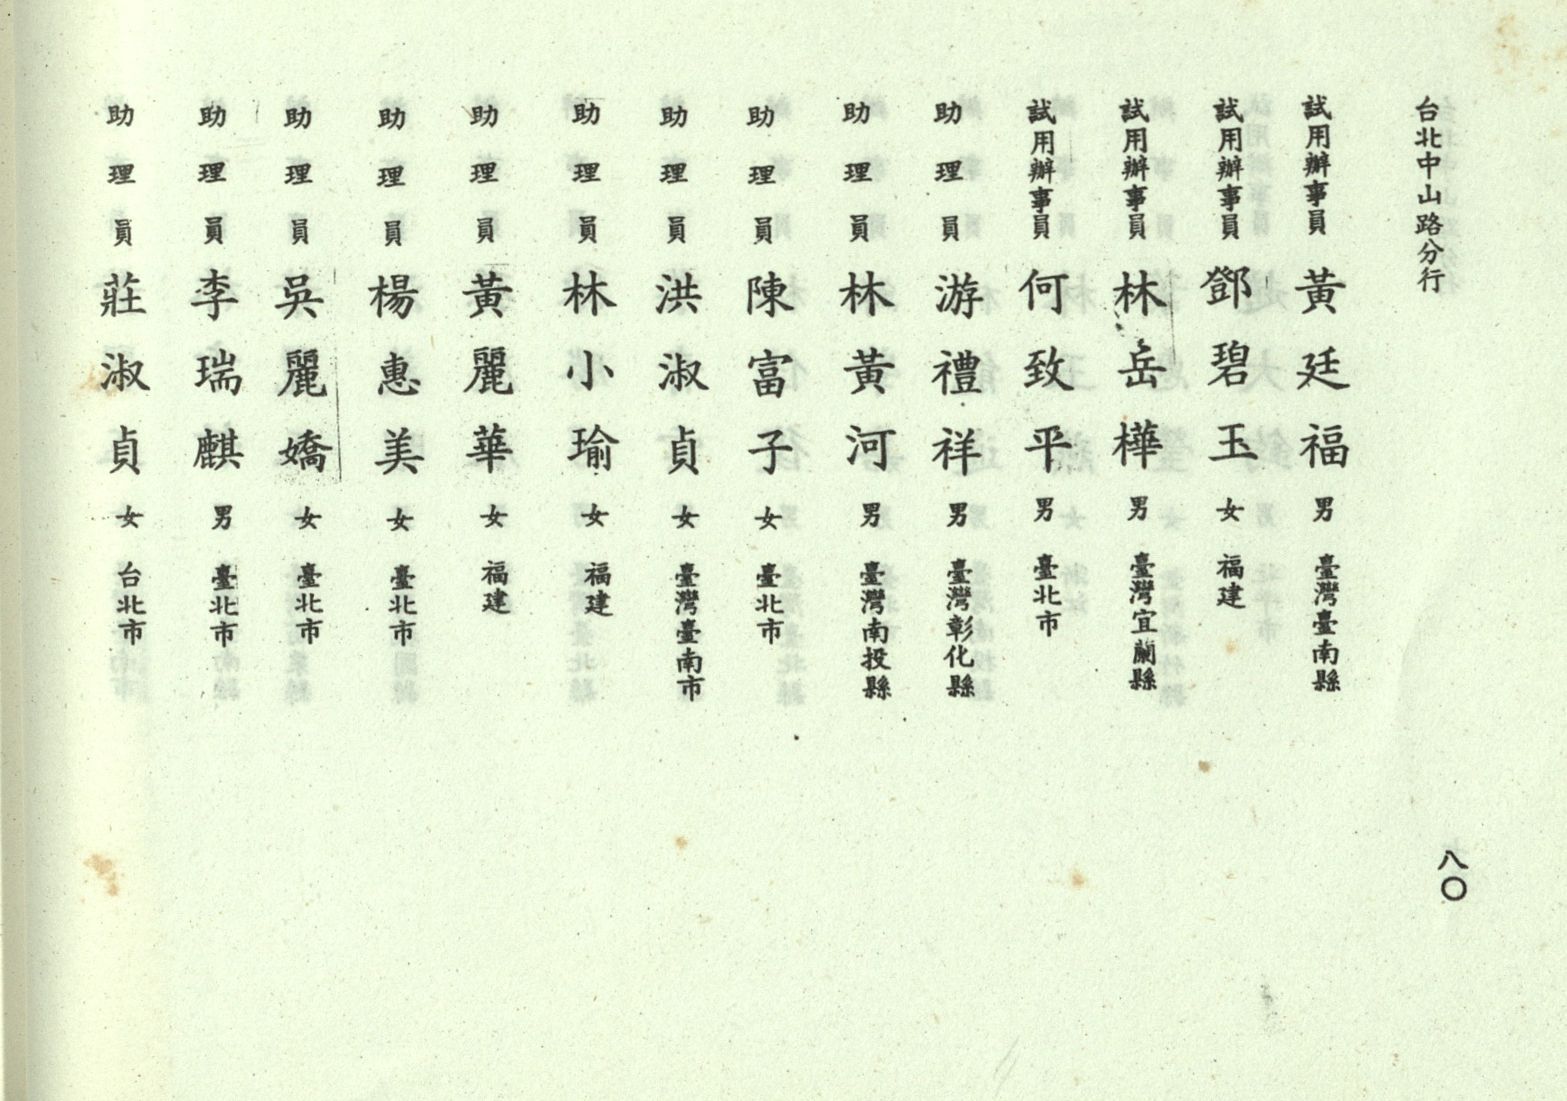 台北中山路分行
試用辦事員 黃廷福 男 臺灣臺南縣
試用辦事員 鄧碧玉 女 福建
試用辦事員 林岳樺 男 臺灣宜蘭縣
試用辦事員 何致平 男 臺北市
助理員 游禮祥 男 臺灣彰化縣
助理員 林黃河 男 臺灣南投縣
助理員 陳富子 女 臺北市
助理員 洪淑貞 女 臺灣臺南市
助理員 林小瑜 女 福建
助理員 黃麗華 女 福建
助理員 楊惠美 女 臺北市
助理員 吳麗嬌 女 臺北市
助理員 李瑞麒 男 臺北市
助理員 莊淑貞 女 台北市
八〇